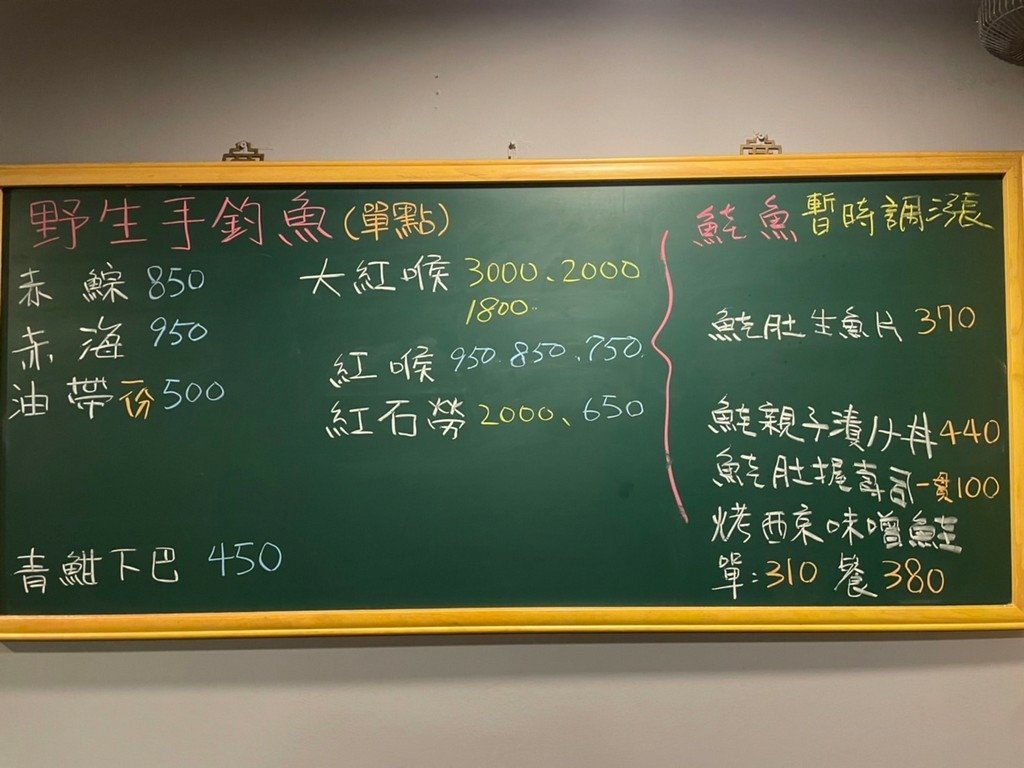 野生手釣魚(單點)
赤鯮 850
赤海 950
油帶一份500
青魽下巴 450
大紅喉 3000、2000
1800
紅喉 950.850、750
紅石勞 2000、650
鮭魚暫時調漲
鮭肚生魚片 370
鮭親子漬丼 440
鮭肚握壽司一貫100
烤西京味噌鮭
單:310 餐380